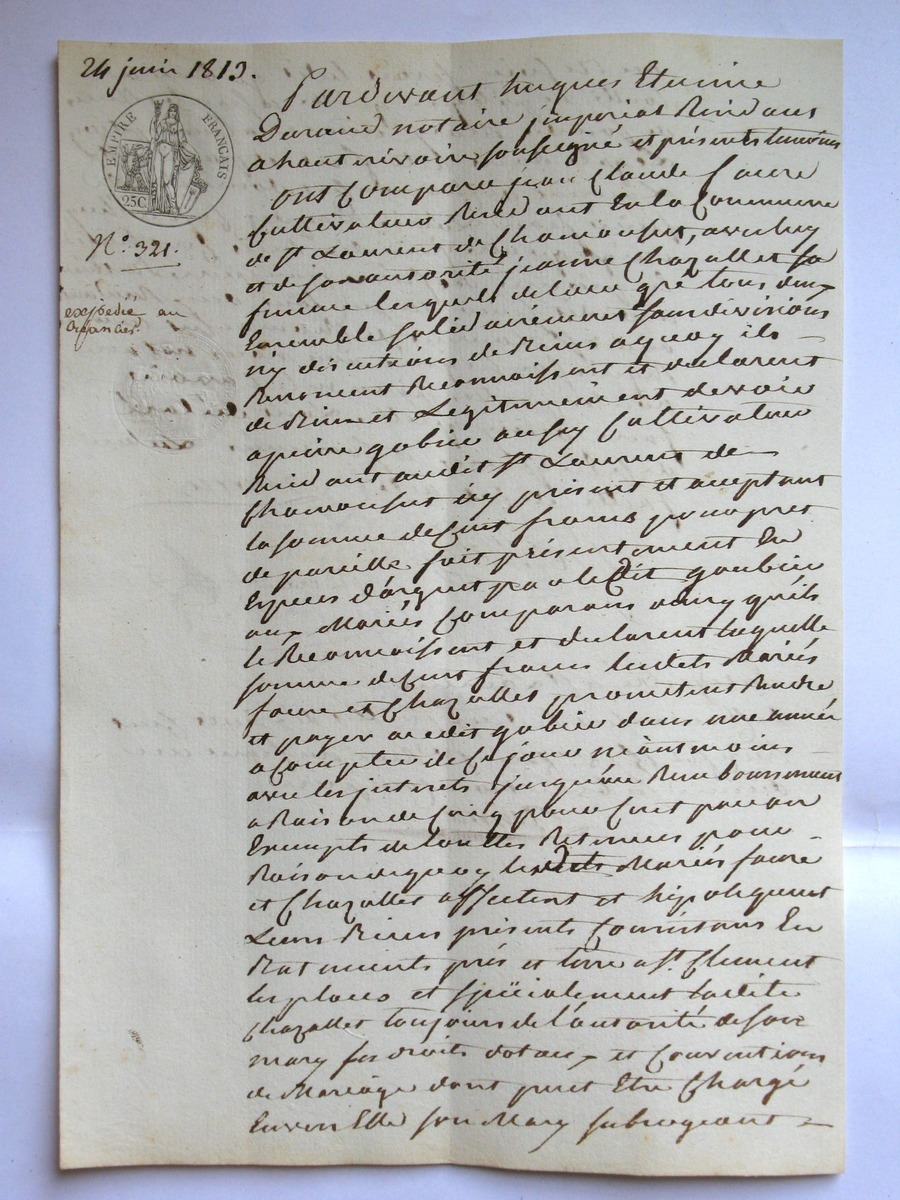 24 juin 1813.
EMPIRE FRANÇAIS
25C
N.º 321.
expedié au
Créancier
Pardevant hugues Etienne
Durand notaire jmperial Residant
a hauterivoire soussigné et présents temoins
ont Comparu jean Claude faure
Cultivateur Residant En la Commune
de St Laurent de Chamousset, avec luy
et de son autorité jeanne Chazalles sa
femme lesquels de leur gré tous deux
Ensemble solidairement sans divisions
ny discutions de Biens aquoy ils
Renoncent Reconnaissent et declarent
de Bien et Legitimement devoir
a pierre gobier aussy Cultivateur
Residant audit St Laurent de
Chamousset icy présent et acceptant
la somme de Cent francs pour pret
de pareille fait présentement En
Especes d'argent par ledit goubier
aux Mariés Comparans ainsy qu'ils
le Reconnaissent et declarent laquelle
somme de Cent francs lesdits Mariés
faure et Chazalles promettent Rendre
et payer audit gobier dans une année
a Compter de Ce jour néantmoins
avec les jnterets jusqu'au Remboursement
a Raison de Cinq pour Cent par an
Exempts de touttes Retenues pour
Raison dequoy lesdits Mariés faure
et Chazalles affectent et hipotequent
Leurs Biens présents Consistans En
Batiments prés et terre a St. Clement
les places et spécialement ladite
Chazalles toujours de l'autorité de son
mary ses droits dotaux et Conventions
de Mariage dont peut Etre Chargé
Envers Elle son Mary subrogeant